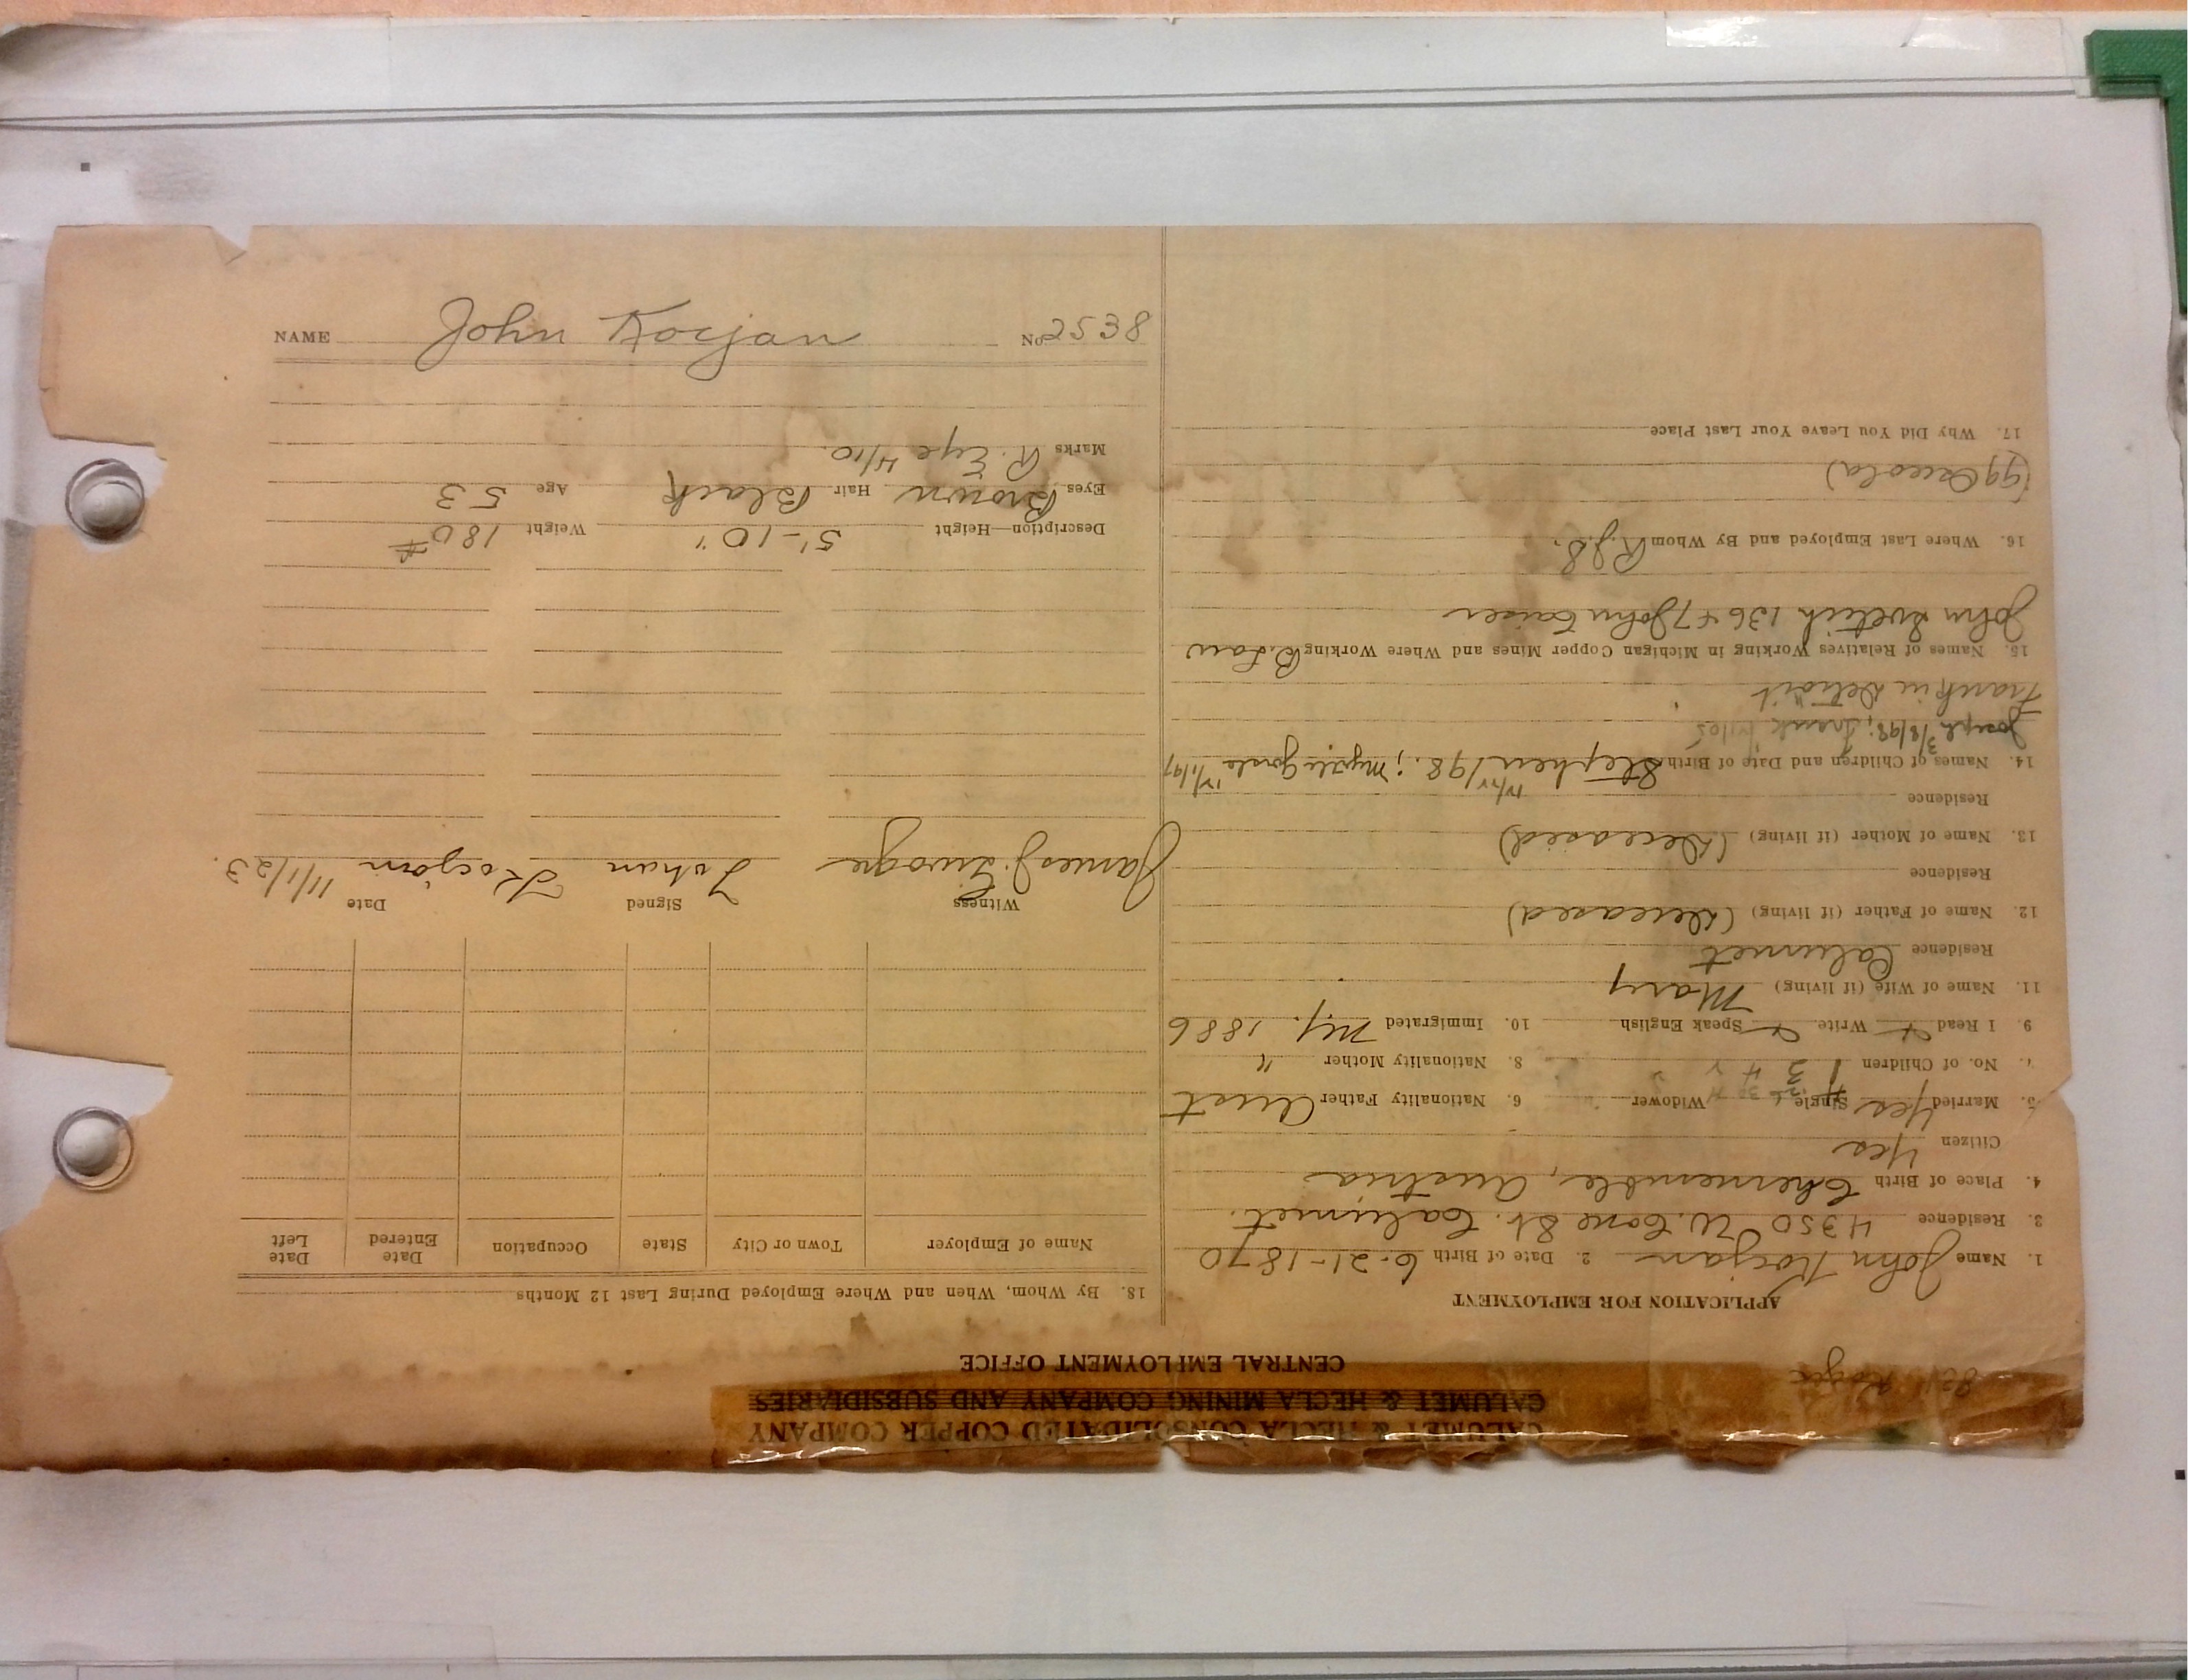 CALUMET & HECLA CONSOLIDATED COPPER COMPANY
CALUMET & HECLA MINING COMPANY AND SUBSIDIARIES
CENTRAL EMPLOYMENT OFFICE
APPLICATION FOR EMPLOYMENT
1. Name John Kocjan 2. Date of Birth 6-21-1870
3. Residence 4350 W. Cone St. Calumet.
4. Place of Birth Chernemble, Austria
Citizen Yes
5. Married Yes Single Widower 6. Nationality Father Aust
7. No. of Children 8. Nationality Mother "
9. I Read Write Speak English 10. Immigrated My. 1886
11. Name of Wife (if living) Mary
Residence Calumet
12. Name of Father (if living) (Deceased)
Residence
13. Name of Mother (if living) (Deceased)
Residence
14. Names of Children and Date of Birth Stephen
Joseph 3/8/98; Frank
Frank in Detroit
15. Names of Relatives Working in Michigan Copper Mines and Where Working B. Law
John 136 + 7 John
16. Where Last Employed and By Whom
(99 Osceola)
17. Why Did You Leave Your Last Place
18. By Whom, When and Where Employed During Last 12 Months
Name of Employer Town or City State Occupation Date Entered Date Left
Witness Signed Date
James J. Johan Kocjan 11/1/23.
Description—Height 5'-10" Weight 180 #
Eyes Brown Hair Black Age 53
Marks R. Eye 4/10.
NAME John Kocjan No 2538